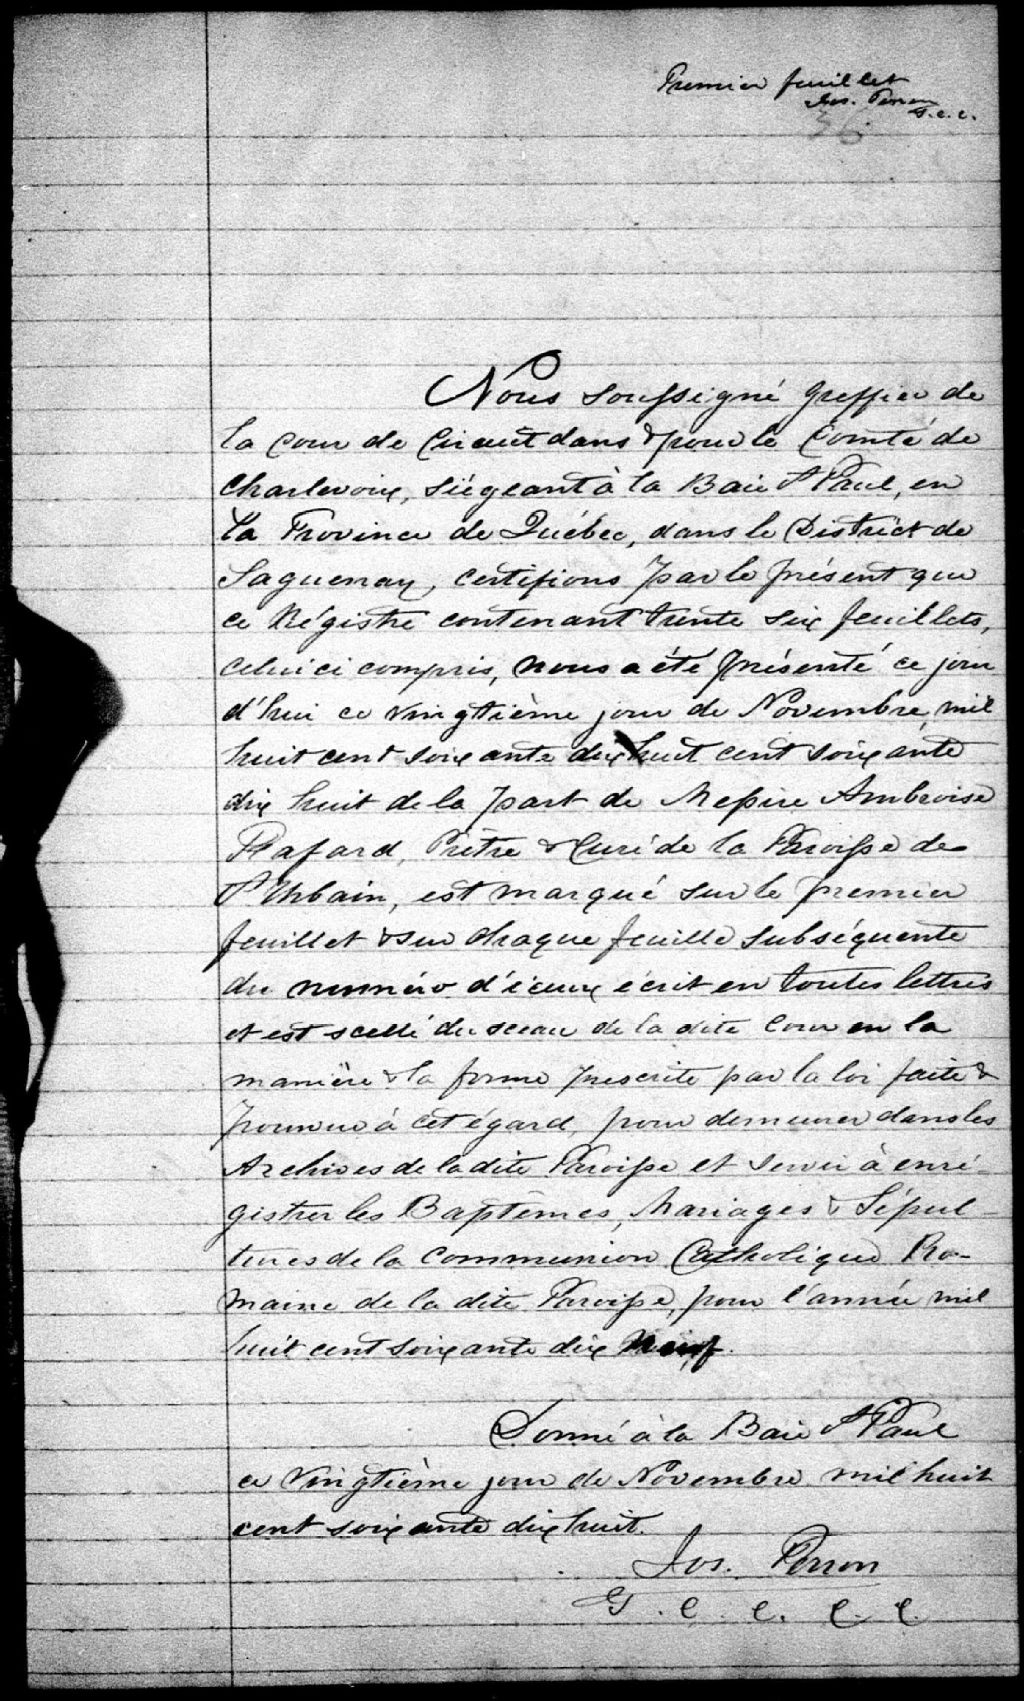 Premier feuillet
Jos. Perron
G.c.c.
36
Nous soussigné Greffier de
la Cour de Circuit dans & pour le Comté de
Charlevoix, siégeant à la Baie St Paul, en
la Province de Québec, dans le District de
Saguenay, certifions par le présent que
ce Régistre contenant trente six feuillets,
celui ci compris, nous a été présenté ce jour
d'hui ce vingtième jour de Novembre, mil
huit cent soixante dix huit cent soixante
dix huit de la part de Messire Ambroise
Fafard, Prêtre & Curé de la Paroisse de
St Urbain, est marqué sur le premier
feuillet & sur chaque feuille subséquente
du numéro d'iceux écrit en toutes lettres
et est scellé du sceau de la dite Cour en la
manière & la forme prescrite par la loi faite &
pourvue à cet égard, pour demeurer dans les
Archives de la dite Paroisse et servir à enré-
gistrer les Baptêmes, Mariages & Sépul-
tures de la Communion Catholique Ro-
maine de la dite Paroisse, pour l'année mil
huit cent soixante dix neuf.
Donné à la Baie St Paul
ce vingtième jour de Novembre mil huit
cent soixante dix huit.
Jos. Perron
G. C. C. C. C.